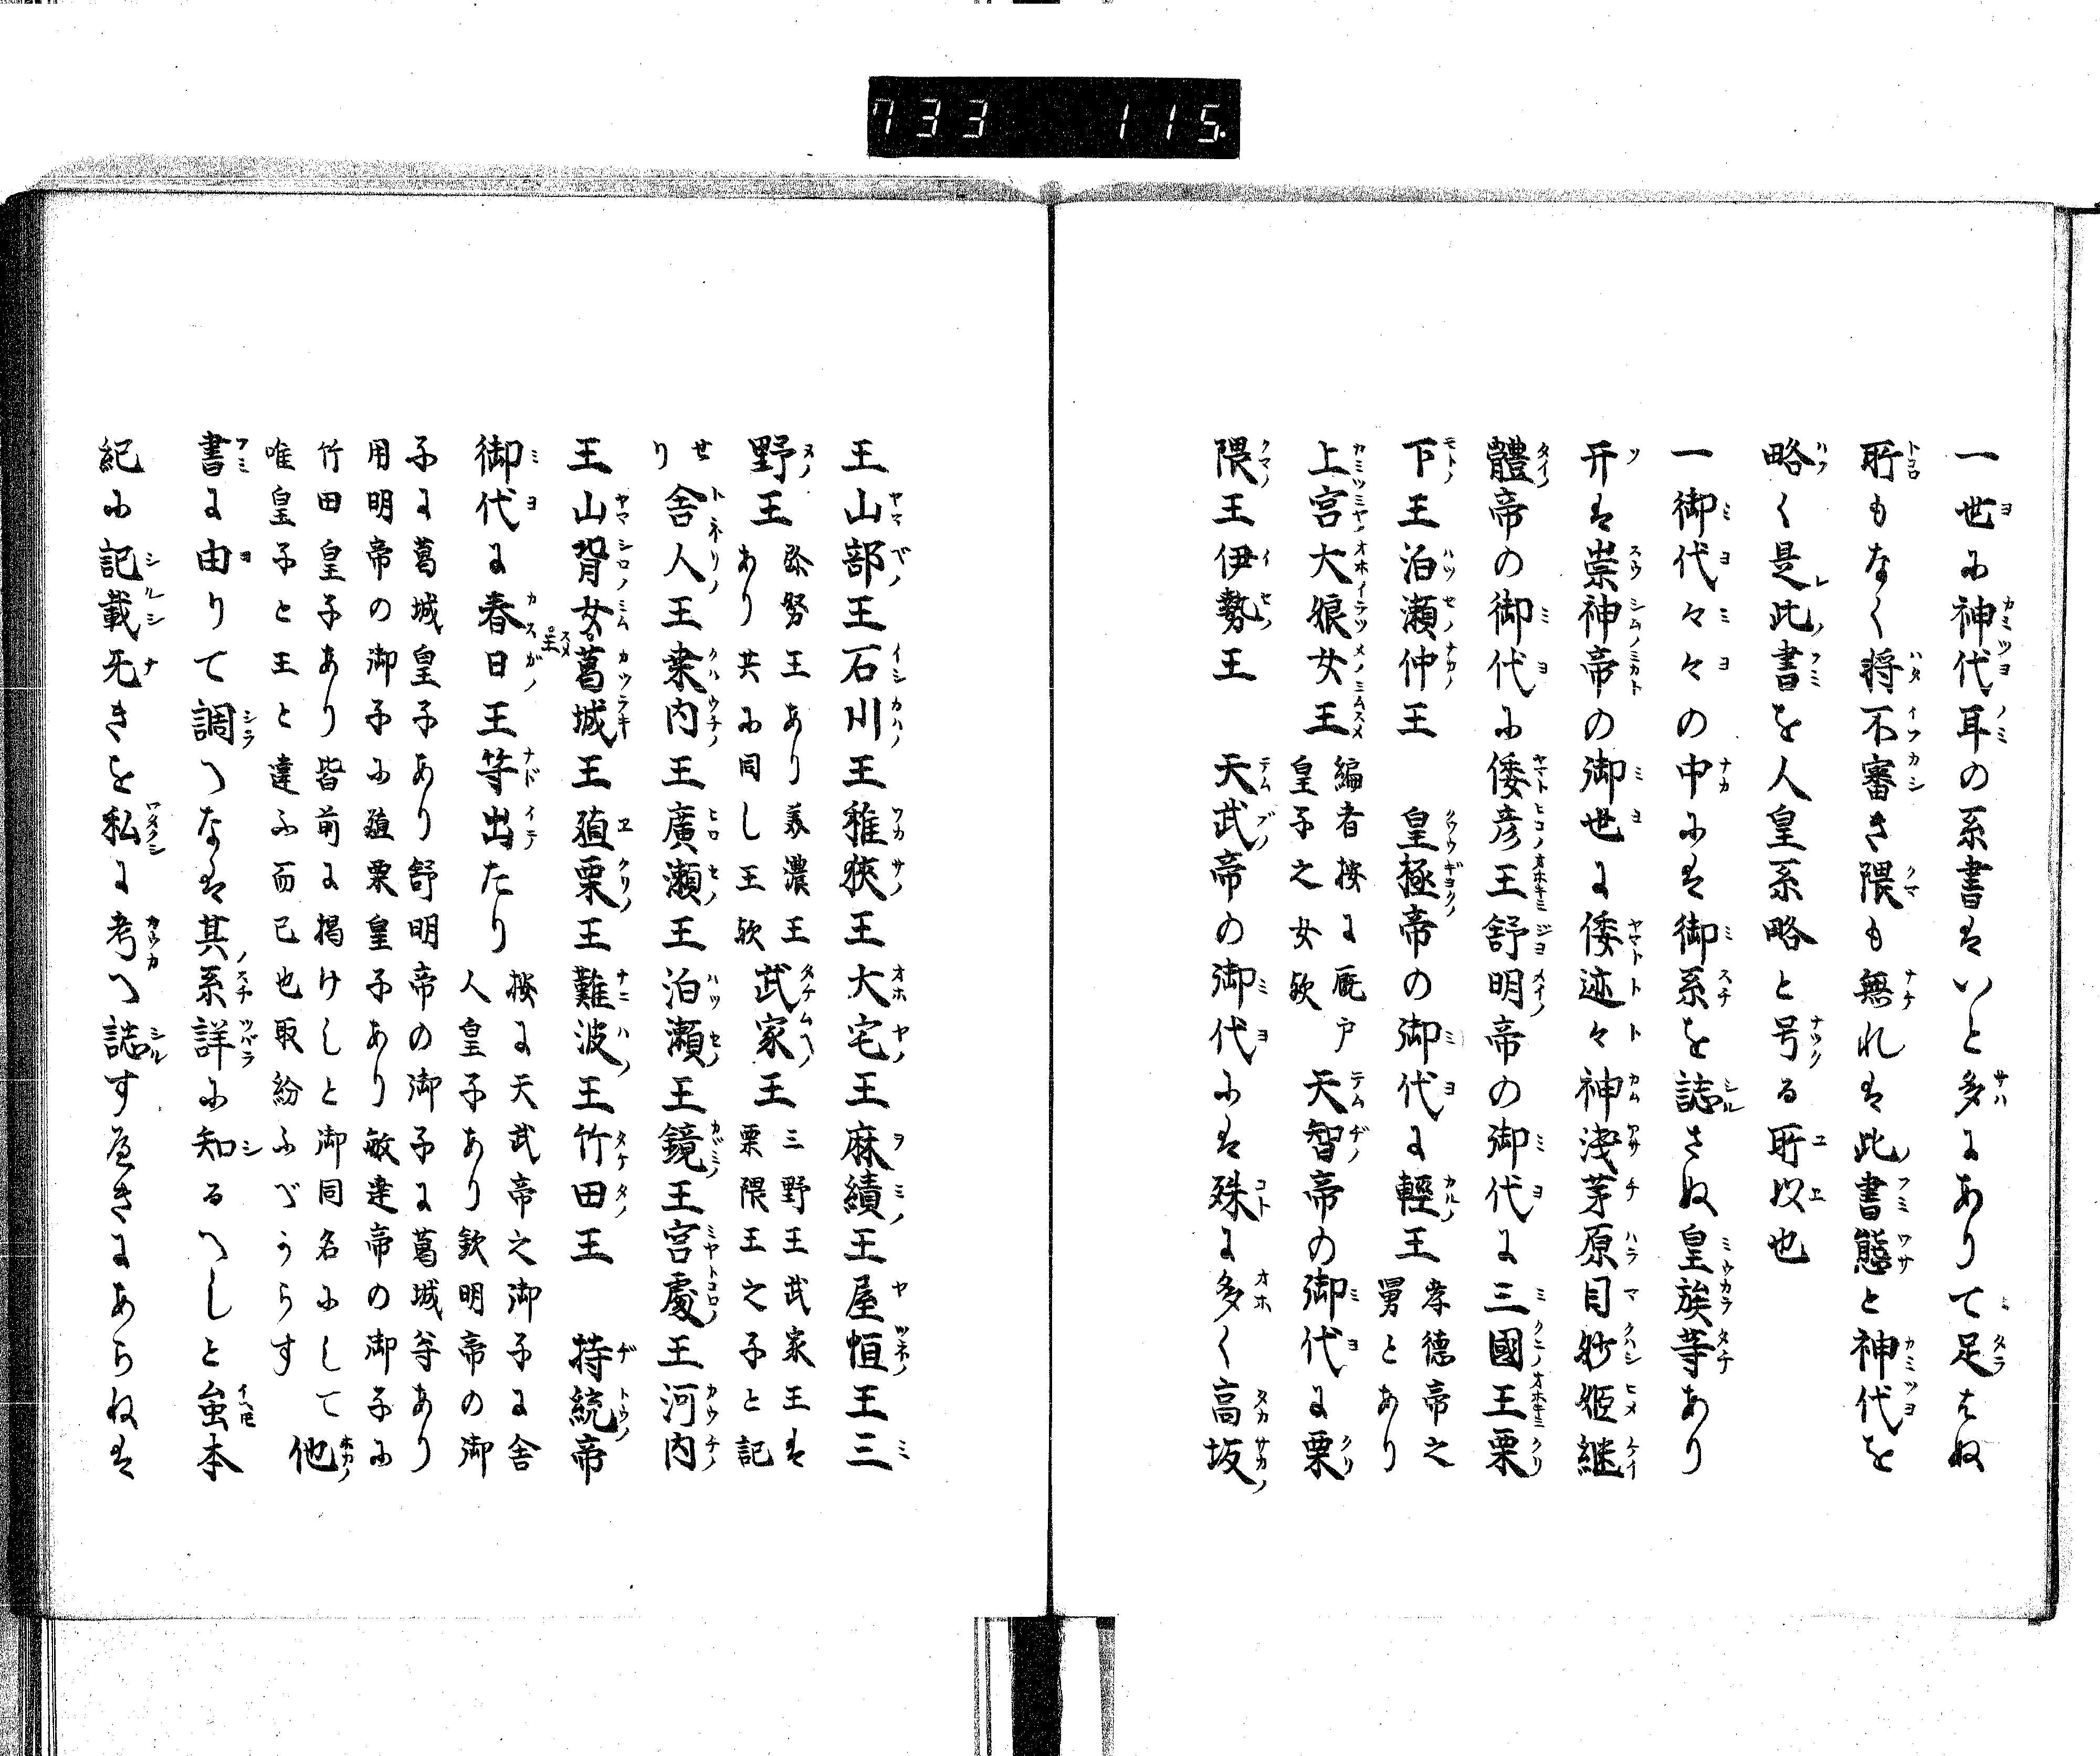 733 115
一世に神代耳の系書はいと多にありて足はぬ
所もなく将不審き隈も無れは此書態と神代を
略く是此書を人皇系略と号る所以也
一御代々々の中には御系を誌さぬ皇族等あり
开は崇神帝の御世に倭迹々神浅茅原目妙姫継
體帝の御代に倭彦王舒明帝の御代に三國王栗
下王泊瀬仲王 皇極帝の御代に輕王孝徳帝之
舅とあり
上宮大娘女王編者按に厩戸
皇子之女歟天智帝の御代に栗
隈王伊勢王 天武帝の御代には殊に多く高坂
王山部王石川王稚狹王大宅王麻績王屋恒王三
野王弥努王あり美濃王
あり共に同し王歟武家王三野王武家王は
栗隈王之子と記
せ
り舎人王桒内王廣瀬王泊瀬王鏡王宮處王河内
王山背女王葛城王殖栗王難波王竹田王 持統帝
御代に春日王等出たり按に天武帝之御子に舎
人皇子あり欽明帝の御
子に葛城皇子あり舒明帝の御子に葛城等あり
用明帝の御子に殖栗皇子あり敏達帝の御子に
竹田皇子あり皆前に掲けしと御同名にして
唯皇子と王と違ふ而已也取紛ふべからす他
書に由りて調へなは其系詳に知るへしと虽本
紀に記載无きを私に考へ誌すへきにあらねは